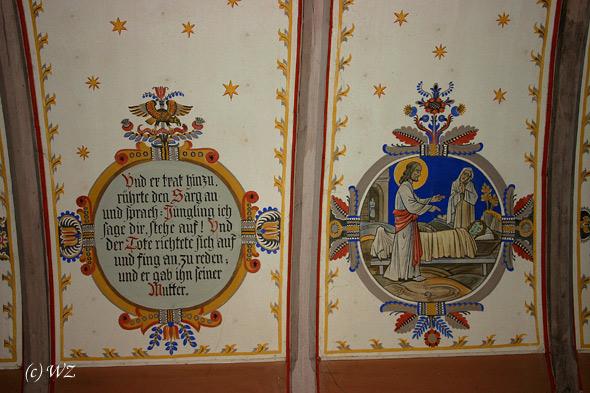 Und er trat hinzu,
rührte den Sarg an
und sprach: Jüngling ich
sage dir, stehe auf! Und
der Tote richtete sich auf
und fing an zu reden;
und er gab ihn seiner
Mutter.
(c) WZ